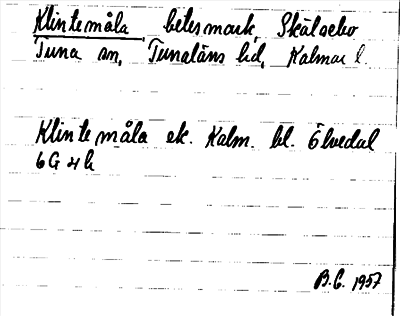 Klintemåla, betesmark, Skälsebo
Tuna sn, Tunaläns hd, Kalmar l.
Klintemåla ek. Kalm. bl. Ölvedal
6G 4h
B.G. 1957